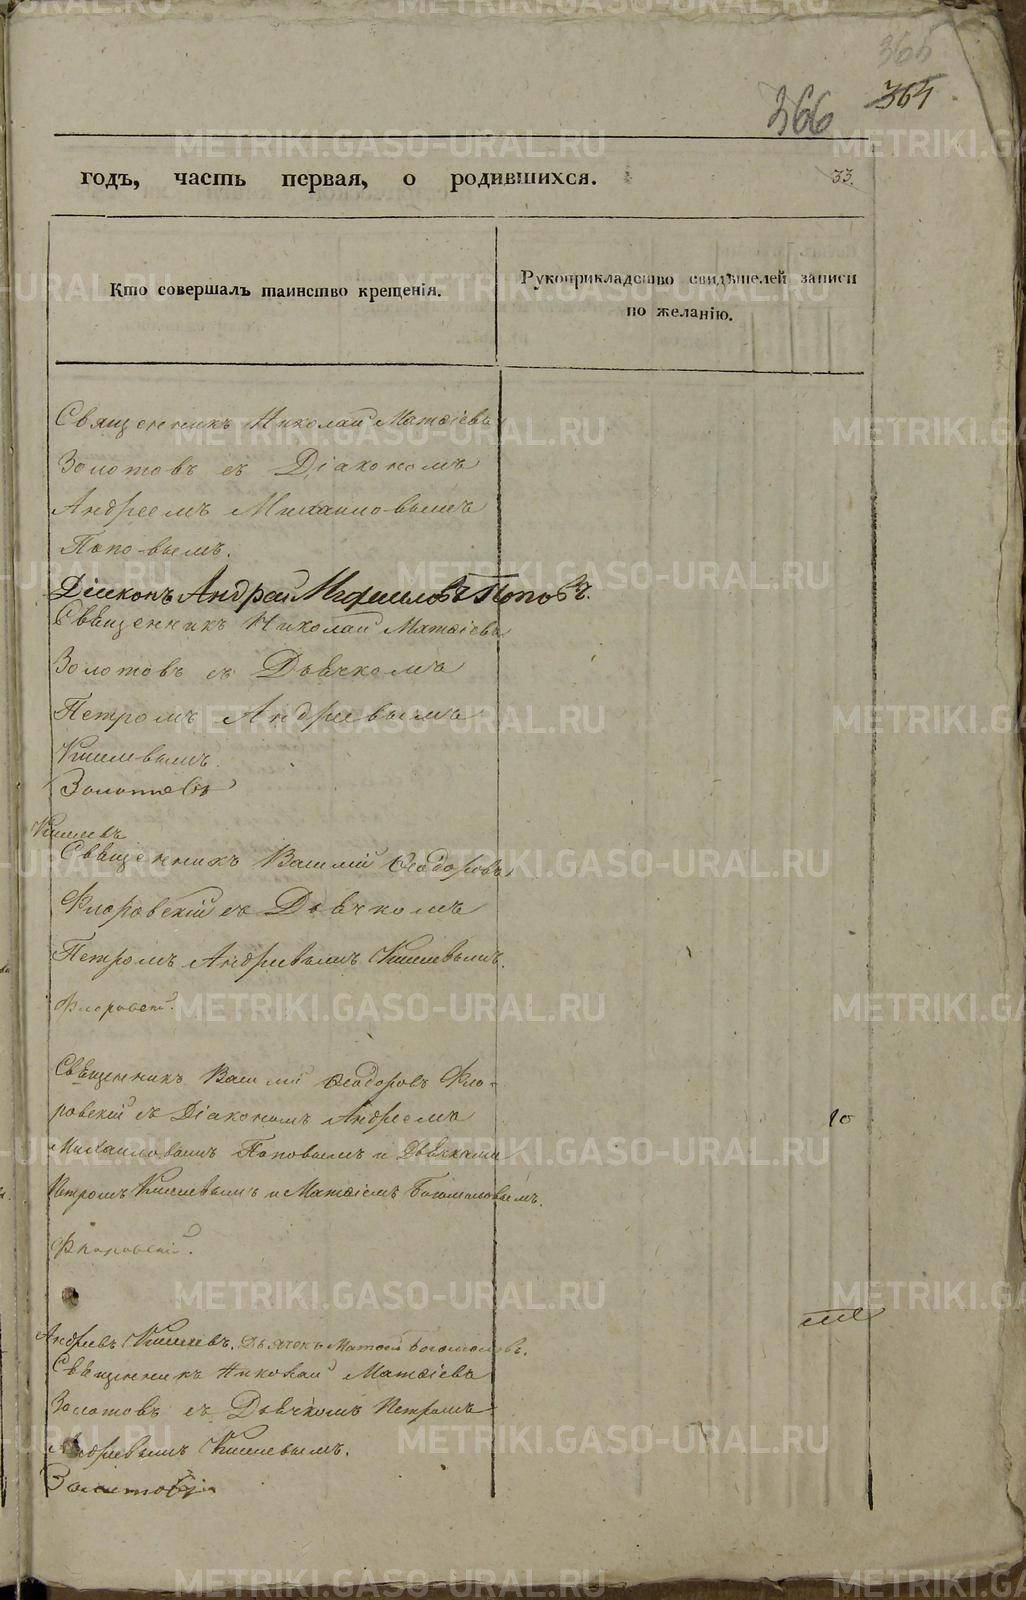 365
366 364
годъ, часть первая, о родившихся. 33.
Кто совершалъ таинство крещенія.
Рукоприкладство свидѣтелей записи
по желанію.
Священникъ Николай Матѳіевъ
Золотовъ съ Діакономъ
Андреемъ Михаиловымъ
Поповымъ.
Діяконъ Андрей Михаиловъ Поповъ.
Священникъ Николай Матѳіевъ
Золотовъ съ Дьячкомъ
Петромъ Андреевымъ
Киселевымъ.
Золотовъ
Киселевъ
Священникъ Василій Ѳеодоровъ
Флоровскій съ Дьячкомъ
Петромъ Андреевымъ Киселевымъ.
Флоровскій.
Священникъ Василій Ѳеодоровъ Фло-
ровскій съ Діакономъ Андреемъ
Михаиловымъ Поповымъ и Дьячками
Петромъ Киселевымъ и Матѳіемъ Богомоловымъ.
Флоровскій.
Андреевъ Киселевъ. Дьячекъ Матѳей Богомоловъ.
Священникъ Николай Матѳіевъ
Золотовъ съ Дьячкомъ Петромъ
Андреевымъ Киселевымъ.
Золотовъ
METRIKI.GASO-URAL.RU